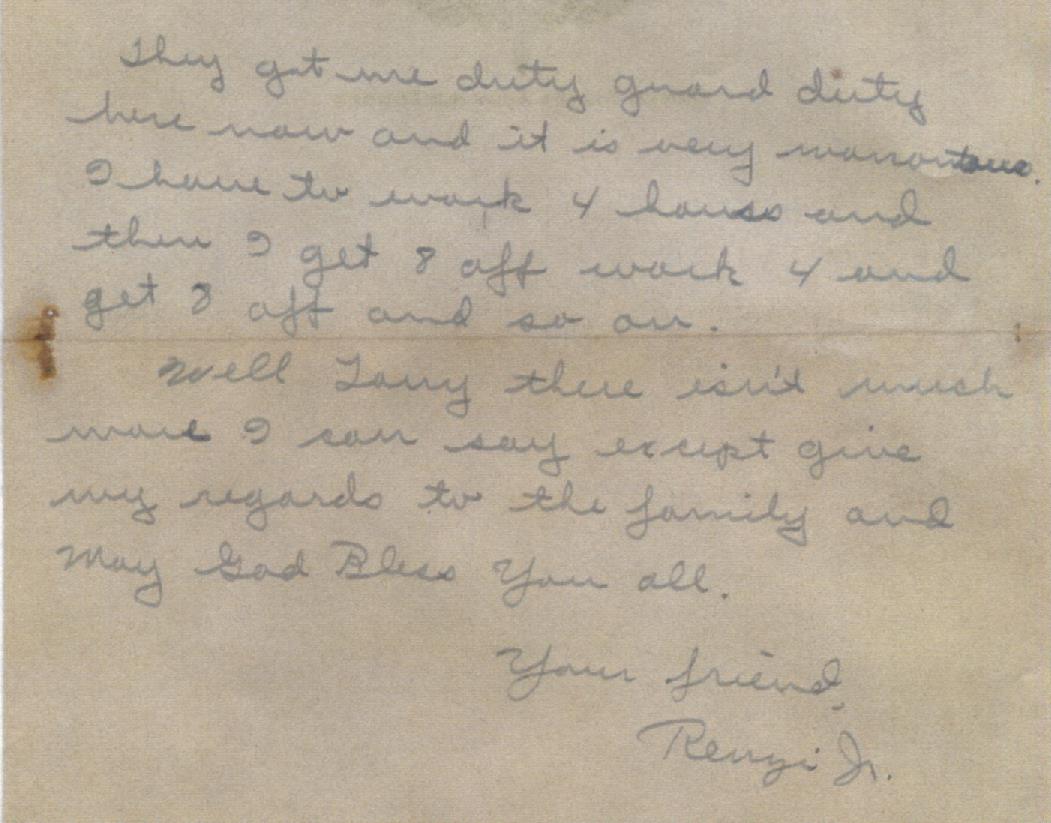 They got me duty guard duty
here now and it is very monontous.
I have to work 4 hours and
then I get 8 off work 4 and
get 8 off and so on.
Well Tony there isn't much
more I can say except give
my regards to the family and
May God Bless You all.
Your friend,
Renzi Jr.